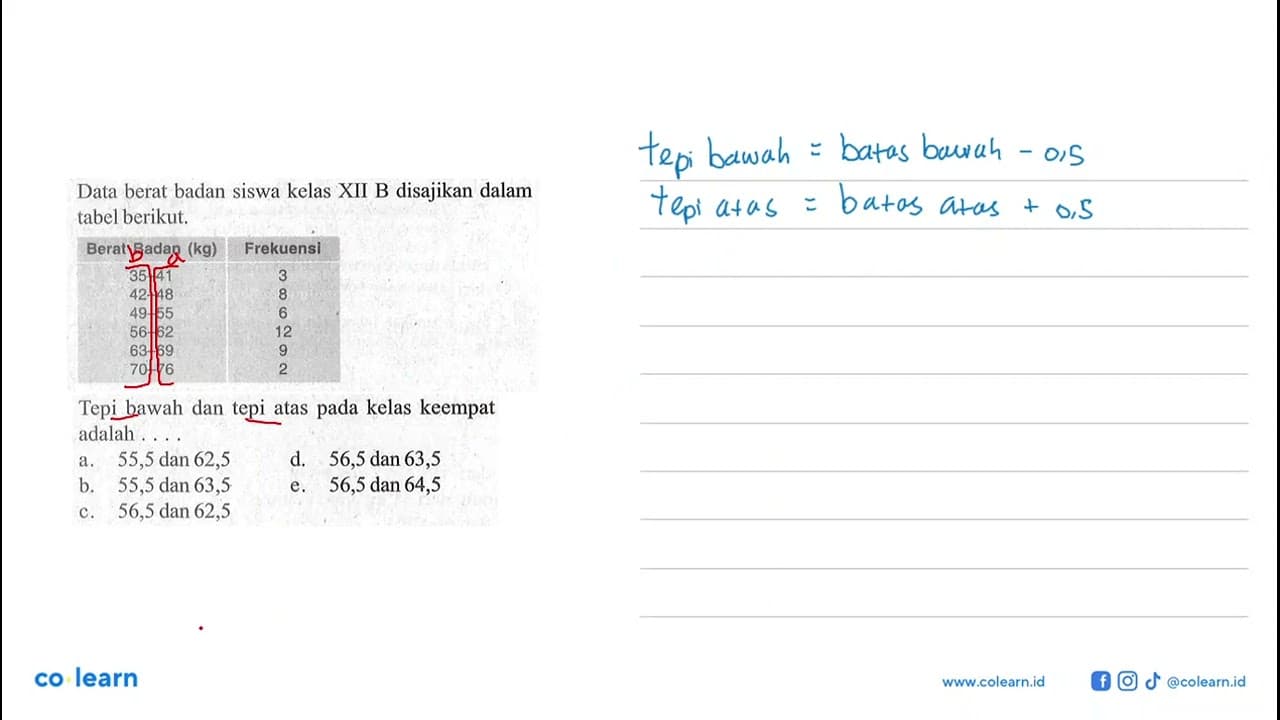 Data berat badan siswa kelas XII B disajikan dalam
tabel berikut.
Berat Badan (kg) Frekuensi
b a
35-41 3
42-48 8
49-55 6
56-62 12
63-69 9
70-76 2
Tepi bawah dan tepi atas pada kelas keempat
adalah . . . .
a. 55,5 dan 62,5 d. 56,5 dan 63,5
b. 55,5 dan 63,5 e. 56,5 dan 64,5
c. 56,5 dan 62,5
tepi bawah = batas bawah - 0,5
tepi atas = batas atas + 0,5
co learn
www.colearn.id @colearn.id